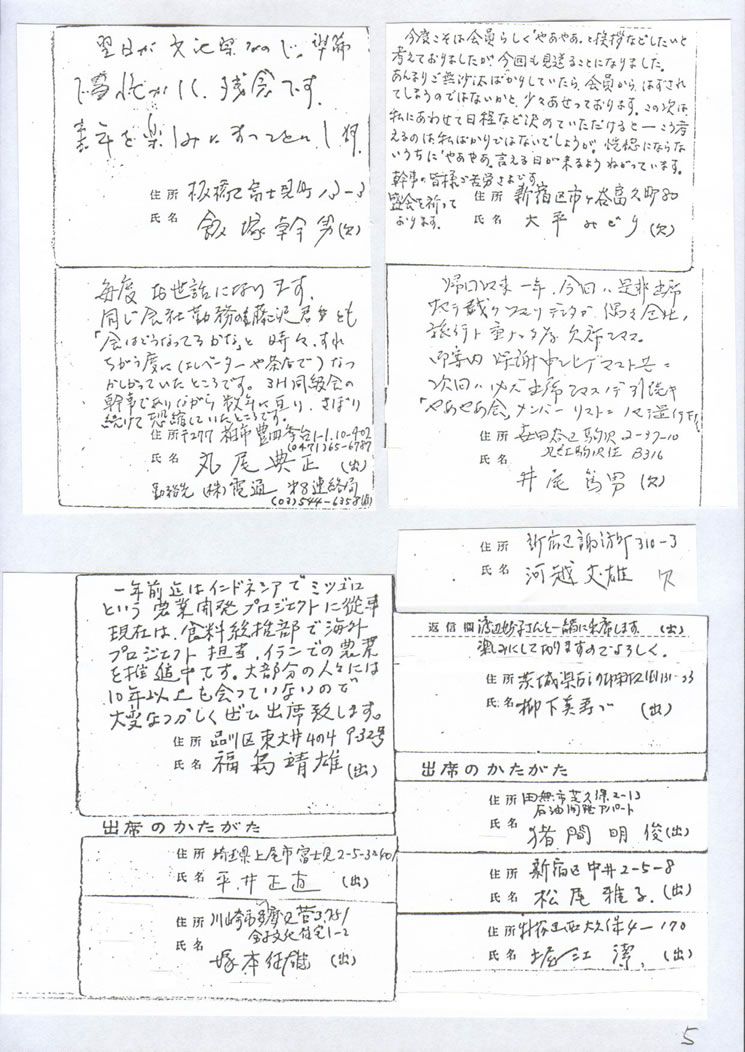 翌日が文化祭なので、準備
で多忙かしく、残念です。
来年を楽しみに
住所 板橋区富士見町13-3
氏名 飯塚幹男(欠)
毎度お世話になります。
同じ会社勤務の藤沢君とも
「会はどうなってるかな」と時々、すれ
ちがう度に(エレベーターや茶店で)なつ
かしがっていたところです。3H同級会の
幹事でありながら数年に亘り、さぼり
続けて恐縮していたところです。
住所 〒277 柏市豊四季台1-1.10-402
(0471)65-6787
氏名 丸尾典正(出)
勤務先(株)電通 第8連絡局
(03)544-6358(直)
一年前迄はインドネシアでミツゴロ
という農業開発プロジェクトに従事
現在は、食料総括部で海外
プロジェクト担当、イランでの農業
を推進中です。大部分の人々には
10年以上も会っていないので
大変なつかしくぜひ出席致します。
住所 品川区東大井4の4 932号
氏名 福島靖雄(出)
出席のかたがた
住所 埼玉県上尾市富士見2-5-32-401
氏名 平井正直(出)
住所 川崎市多摩区菅3751
文化住宅1-2
氏名 塚本征雄(出)
今度こそは会員らしく“やあやあ”と挨拶などしたいと
考えておりましたが、今回も見送ることになりました。
あんまりご無沙汰ばかりしていたら、会員から、はずされ
てしまうのではないかと、少々あせっております。この次は、
私にあわせて日程など決めていただけると—こう考
えるのは私ばかりではないでしょうが。恍惚にならな
いうちに“やあやあ”言える日が来るようねがっています。
幹事の皆様ご苦労さまです。
盛会を祈って
おります。
住所 新宿区市ヶ谷富久町80
氏名 大平みどり(欠)
帰国以来一年、今回ハ是非出席
サセテ戴クツモリデシタガ、偶々会社
旅行ト重ナッタ為欠席シマス。
次回ハ必ズ出席シマスノデ引続キ
「やあやあ会」メンバーリストニ
住所 世田谷区駒沢2-37-10
B316
氏名 井尾 男(欠)
住所 新宿区諏訪町310-3
氏名 河越丈雄 欠
返信欄 渡辺妙子さんと一緒に出席します。(出)
楽しみにして居りますのでよろしく。
住所 茨城県
氏名 柳下真寿 (出)
出席のかたがた
住所 田無市芝久保2-13
石油開発アパート
氏名 猪間明俊(出)
住所 新宿区中井2-5-8
氏名 松尾雅子(出)
住所 新宿区西大久保4-170
氏名 堀江潔(出)
5